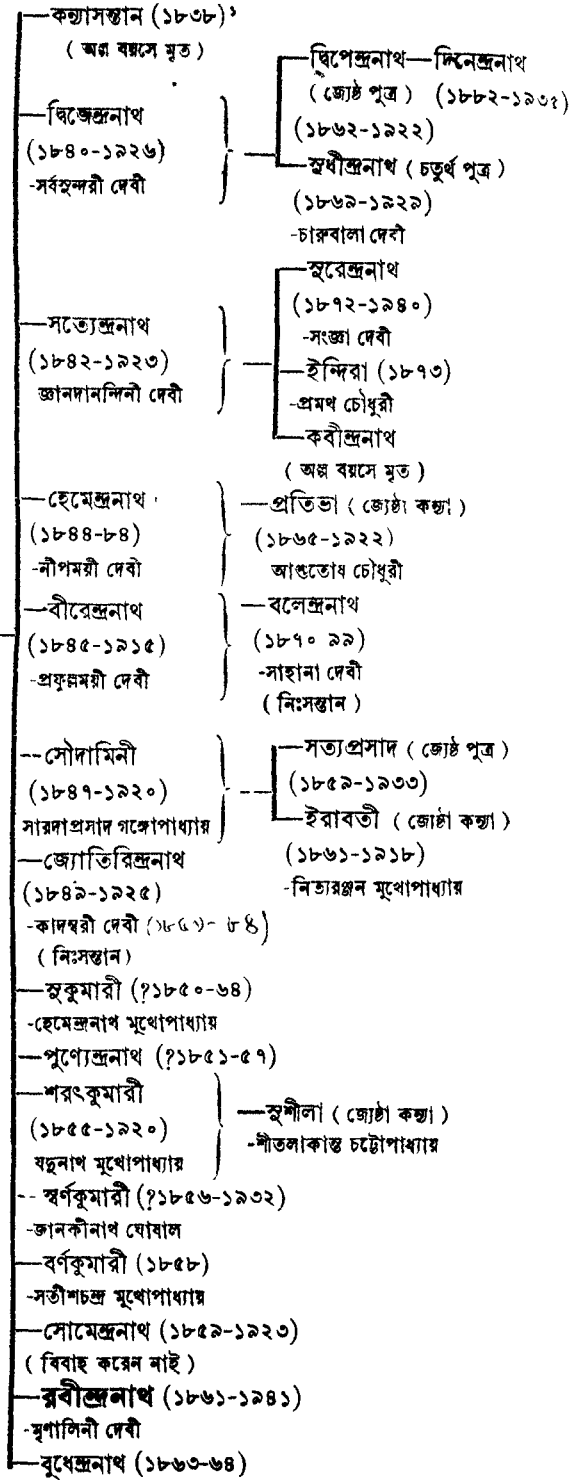 —কন্যাসন্তান (১৮৩৮)¹
( অল্প বয়সে মৃত )
—দ্বিজেন্দ্রনাথ
(১৮৪০-১৯২৬)
-সর্বসুন্দরী দেবী
দ্বিপেন্দ্রনাথ—দিনেন্দ্রনাথ
( জ্যেষ্ঠ পুত্র ) (১৮৮২-১৯৩৫)
(১৮৬২-১৯২২)
—সুধীন্দ্রনাথ ( চতুর্থ পুত্র )
(১৮৬৯-১৯২৯)
-চারুবালা দেবী
—সত্যেন্দ্রনাথ
(১৮৪২-১৯২৩)
জ্ঞানদানন্দিনী দেবী
—সুরেন্দ্রনাথ
(১৮৭২-১৯৪০)
-সংজ্ঞা দেবী
—ইন্দিরা (১৮৭৩)
-প্রমথ চৌধুরী
—কবীন্দ্রনাথ
( অল্প বয়সে মৃত )
—হেমেন্দ্রনাথ
(১৮৪৪-৮৪)
-নীপময়ী দেবী
—প্রতিভা ( জ্যেষ্ঠা কন্যা )
(১৮৬৫-১৯২২)
আশুতোষ চৌধুরী
—বীরেন্দ্রনাথ
(১৮৪৫-১৯১৫)
-প্রফুল্লময়ী দেবী
—বলেন্দ্রনাথ
(১৮৭০ ৯৯)
-সাহানা দেবী
( নিঃসন্তান )
--সৌদামিনী
(১৮৪৭-১৯২০)
সারদাপ্রসাদ গঙ্গোপাধ্যায়
—সত্যপ্রসাদ ( জ্যেষ্ঠ পুত্র )
(১৮৫৯-১৯৩৩)
—ইরাবতী ( জ্যেষ্ঠা কন্যা )
(১৮৬১-১৯১৮)
-নিত্যরঞ্জন মুখোপাধ্যায়
—জ্যোতিরিন্দ্রনাথ
(১৮৪৯-১৯২৫)
-কাদম্বরী দেবী
( নিঃসন্তান )
—সুকুমারী (?১৮৫০-৬৪)
-হেমেন্দ্রনাথ মুখোপাধ্যায়
—পুণ্যেন্দ্রনাথ (?১৮৫১-৫৭)
—শরৎকুমারী
(১৮৫৫-১৯২০)
যদুনাথ মুখোপাধ্যায়
—সুশীলা ( জ্যেষ্ঠা কন্যা )
-শীতলাকান্ত চট্টোপাধ্যায়
-- স্বর্ণকুমারী (?১৮৫৬-১৯৩২)
-জানকীনাথ ঘোষাল
—বর্ণকুমারী (১৮৫৮)
-সতীশচন্দ্র মুখোপাধ্যায়
—সোমেন্দ্রনাথ (১৮৫৯-১৯২৩)
( বিবাহ করেন নাই )
—রবীন্দ্রনাথ (১৮৬১-১৯৪১)
-মৃণালিনী দেবী
—বুধেন্দ্রনাথ (১৮৬৩-৬৪)